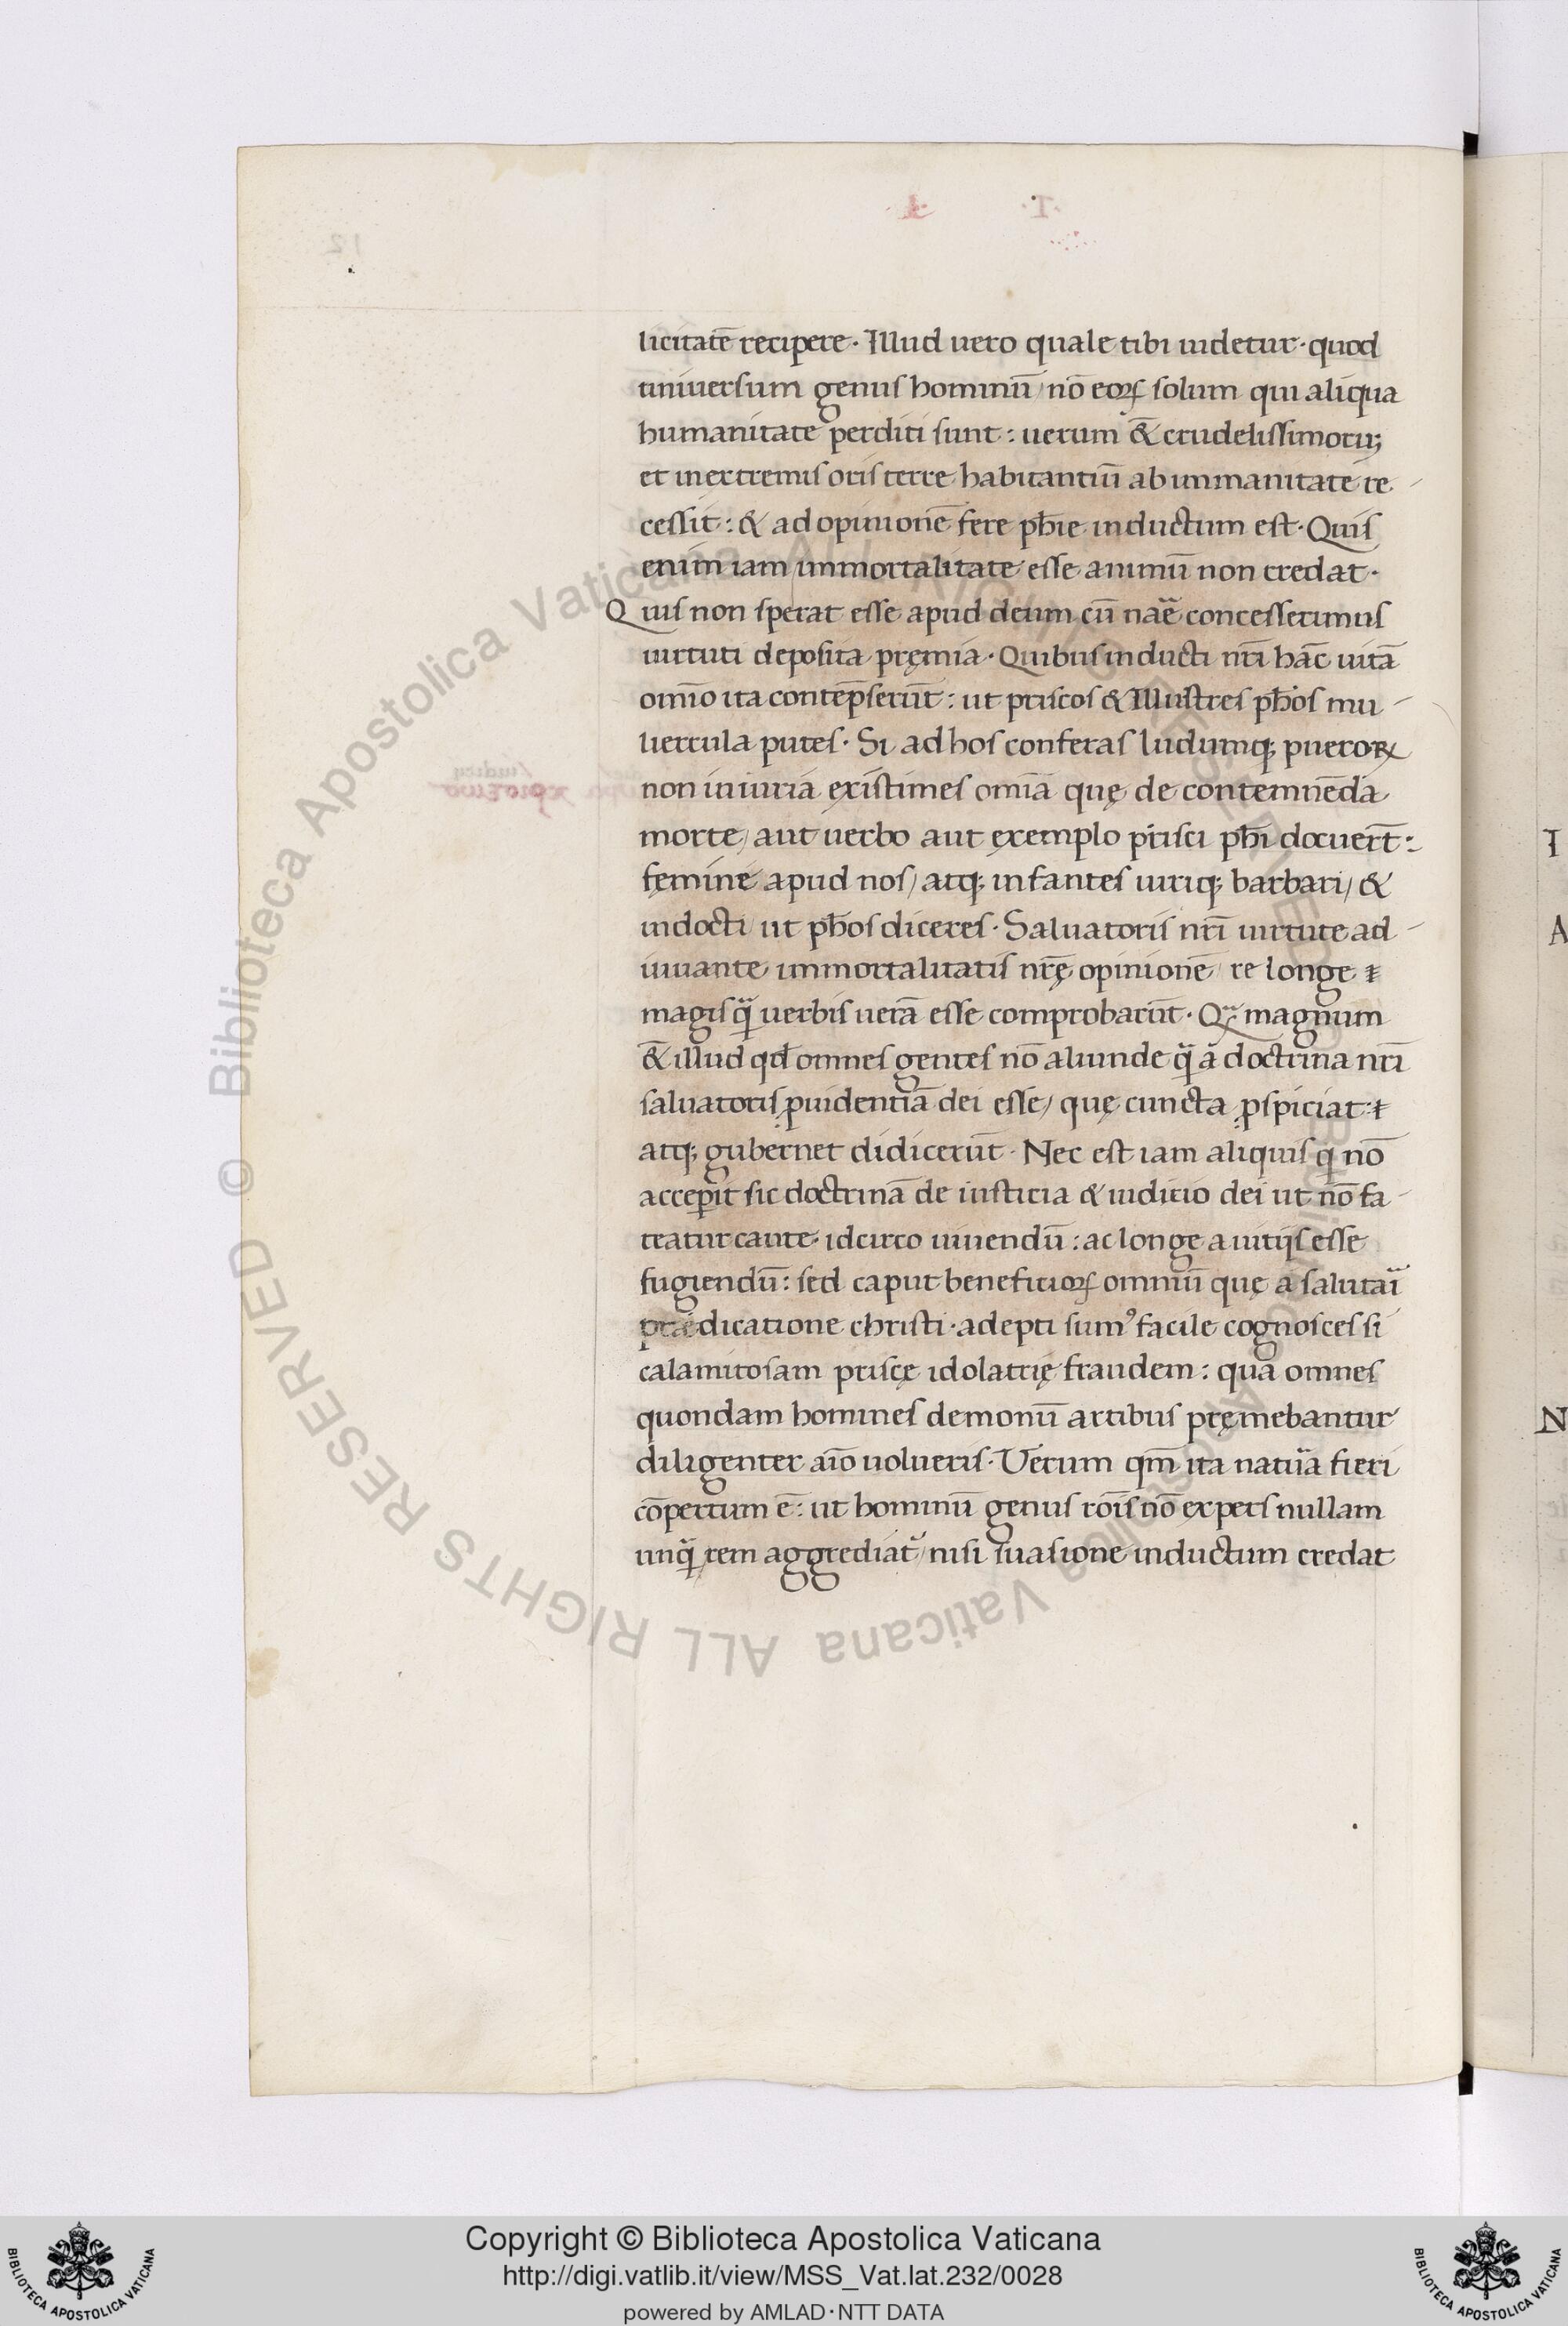 licitatē recipere · Illud uero quale tibi uidetur · quod
uniuersum genus hominū / nō eoꝝ solum qui aliqua
humanitate perditi sunt : uerum & crudelissimorū
et in extremis oris terre habitantiū ab immanitate re
cessit : & ad opinionē fere pħie inductum est · Quis
enim iam immortalitate esse animū non credat ·
Quis non sperat esse apud deum cū concesserimus
uirtuti deposita pręmia · Quibus inducti nr̄i hāc uitā
omīo ita contēpserūt : ut priscos & Illustres pħos mu
liercula putes · Si ad hos conferas ludumq; pueroꝝ
non iniuria existimes omīa quę de contemnēda
morte / aut uerbo aut exemplo prisci pħi docuer̄t :
femine apud nos / atq; infantes uiriq; barbari / &
indocti / ut pħos diceres · Saluatoris nr̄i uirtute ad
iuuante immortalitatis nr̄ę opinionē / re longe
magis q̄ uerbis uerā esse comprobarūt · magnum
& illud qđ omnes gentes nō aliunde q̄ a doctrina nr̄i
saluatoris ꝓuidentiā dei esse / quę cuncta ꝑspiciat :
atq; gubernet didicerūt · Nec est iam aliquis q̇ nō
acceperit sic doctrinā de iusticia & iudicio dei ut nō fa
teatur caute idcirco uiuendū : ac longe a uitijs esse
fugiendū : sed caput beneficioꝝ omniū quę a salutari
prædicatione christi · adepti sumꝰ facile cognosces si
calamitosam priscę idolatrię fraudem : qua omnes
quondam homines demonū artibus pręmebantur
diligenter aīo uolueris · Verum qm̄ ita natura fieri
cōpertum ē : ut hominū genus rōis nō expers nullam
unq̄ / rem aggrediat᷑ / nisi suasione inductum credat
© Biblioteca Apostolica Vaticana ALL RIGHTS RESERVED
Copyright © Biblioteca Apostolica Vaticana
http://digi.vatlib.it/view/MSS_Vat.lat.232/0028
powered by AMLAD·NTT DATA
BIBLIOTECA APOSTOLICA VATICANA
BIBLIOTECA APOSTOLICA VATICANA
I
A
N